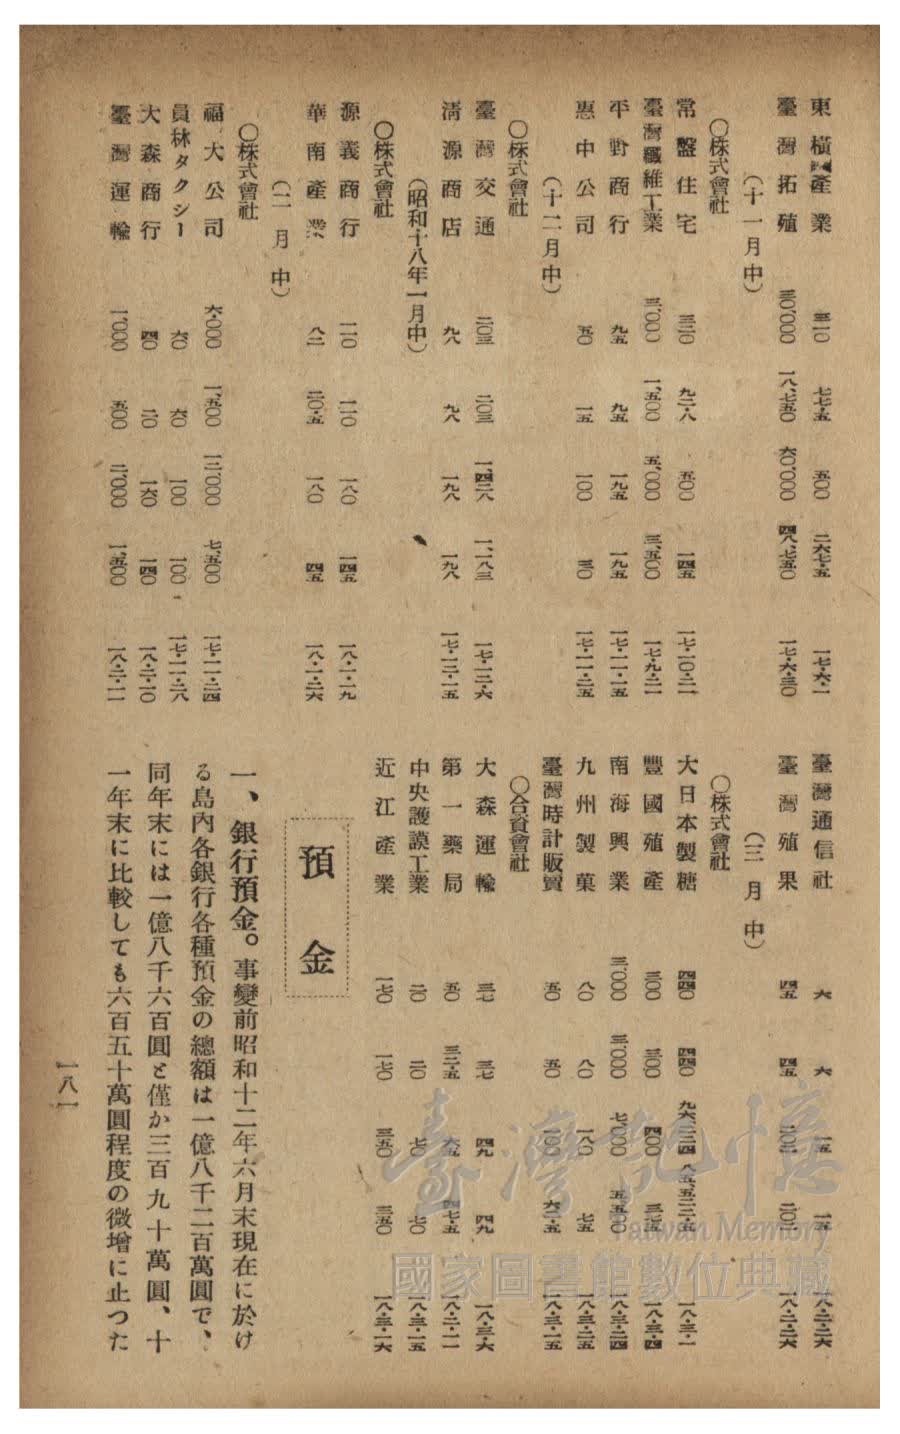 東横產業 三一〇 七七・五 五〇〇 二六七・五 一七・六・一
臺灣拓殖 三〇,〇〇〇 一八,七五〇 六〇,〇〇〇 四八,七五〇 一七・六・三〇
(十一月中)
〇株式會社
常盤住宅 三二〇 九二・八 五〇〇 一四五 一七・一〇・二一
臺灣纖維工業 三,〇〇〇 一,五〇〇 五,〇〇〇 三,五〇〇 一七・九・二一
平野商行 九五 九五 一九五 一九五 一七・一一・一五
惠中公司 五〇 一五 一〇〇 三〇 一七・一一・二五
(十二月中)
〇株式會社
臺灣交通 二〇三 二〇三 一,四二八 一,一八三 一七・一二・六
淸源商店 九八 九八 一九八 一九八 一七・一二・一五
(昭和十八年一月中)
〇株式會社
源義商行 一一〇 一一〇 一八〇 一四五 一八・一・一九
華南產業 八二 二〇・五 一八〇 四五 一八・一・二六
(二月中)
〇株式會社
福大公司 六,〇〇〇 一,五〇〇 一二,〇〇〇 七,五〇〇 一七・一一・二四
員林タクシー 六〇 六〇 一〇〇 一〇〇 一七・一一・二八
大森商行 四〇 二〇 一六〇 一四〇 一八・二・一〇
臺灣運輸 一,〇〇〇 五〇〇 二,〇〇〇 一,五〇〇 一八・二・一一
臺灣通信社 六 六 一五 一五 一八・二・二六
臺灣殖果 四五 四五 二〇二 二〇二 一八・二・二六
(三月中)
〇株式會社
大日本製糖 四四〇 四四〇 九六,二三四 八五,五二三・五 一八・三・一
豐國殖產 三〇〇 三〇〇 四〇〇 三七五 一八・三・四
南海興業 三,〇〇〇 三,〇〇〇 七,〇〇〇 五,五〇〇 一八・三・二四
九州製菓 八〇 八〇 一八〇 七五 一八・三・二五
臺灣時計販賣 五〇 五〇 一〇〇 六二・五 一八・三・一五
〇合資會社
大森運輸 三七 三七 四九 四九 一八・三・六
第一藥局 五〇 三二・五 六五 四七・五 一八・二・一一
中央護謨工業 二〇 二〇 七〇 七〇 一八・三・一五
近江產業 一七〇 一七〇 三五〇 三五〇 一八・三・一六
預金
一、銀行預金。事變前昭和十二年六月末現在に於け
る島內各銀行各種預金の總額は一億八千二百萬圓で、
同年末には一億八千六百圓と僅か三百九十萬圓、十
一年末に比較しても六百五十萬圓程度の微增に止つた
一八一
臺灣記憶
Taiwan Memory
國家圖書館數位典藏